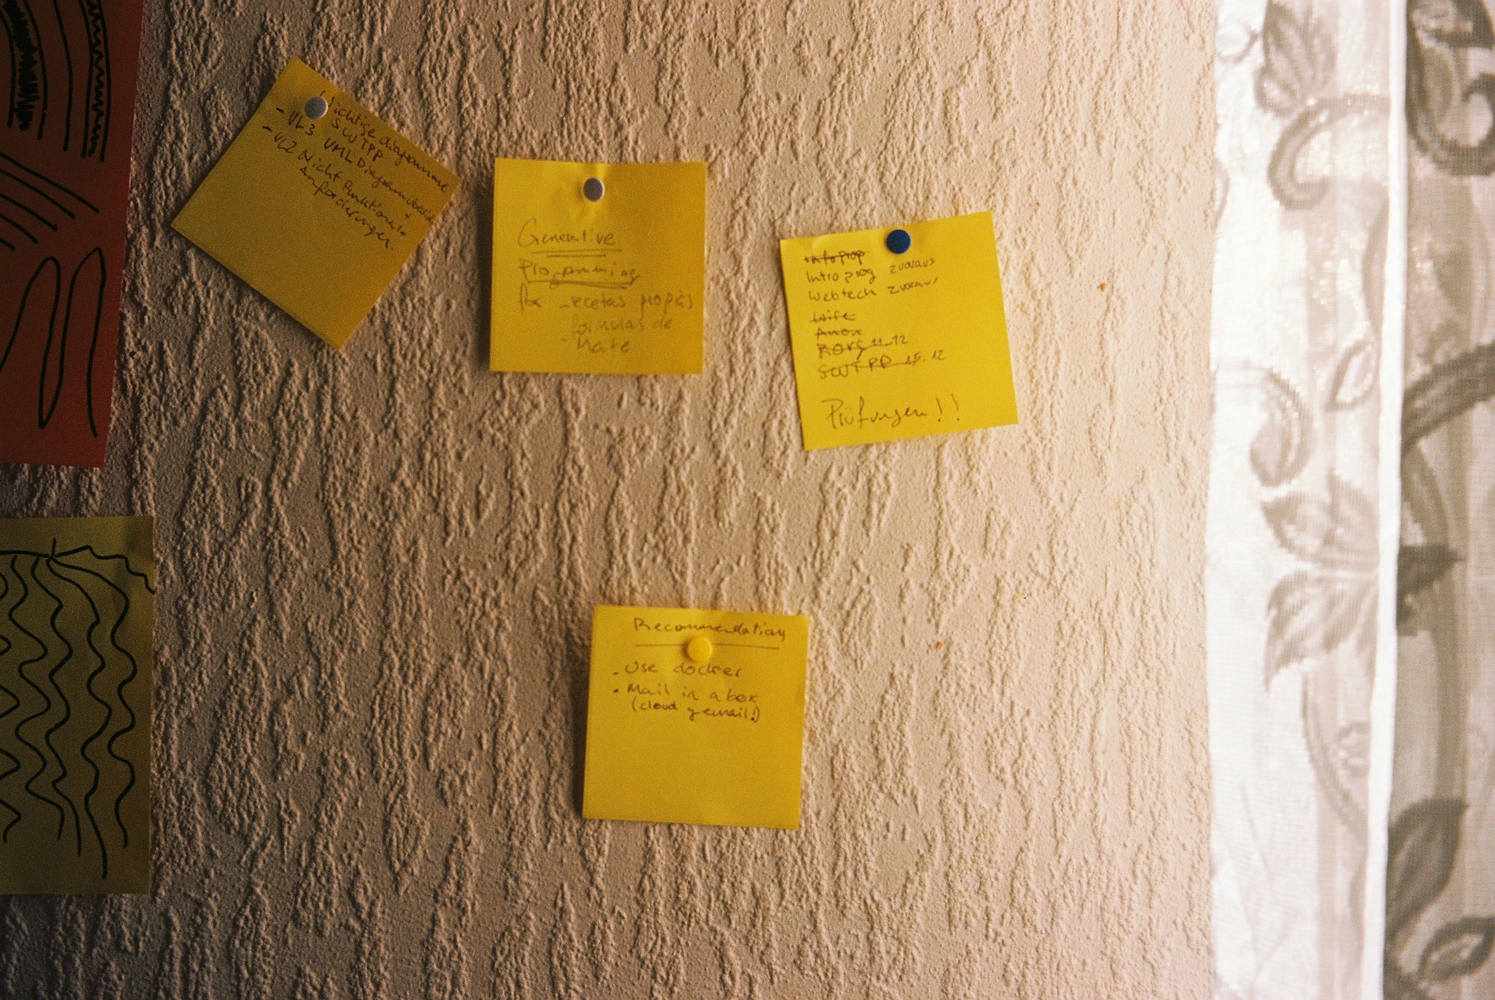 Wichtige diagramme
SWTPP
- VL3 UMLDiagramm
- VL2 Nicht funktionale
Anforderungen
Generative
Programming
for - recetas propias
formulas de
- Mate
Infoprop
Introprog voraus
Webtech voraus
SWTPP 15.12
Prüfungen!!
Recommendation
- Use docker
- Mail in a box
(cloud y email!)